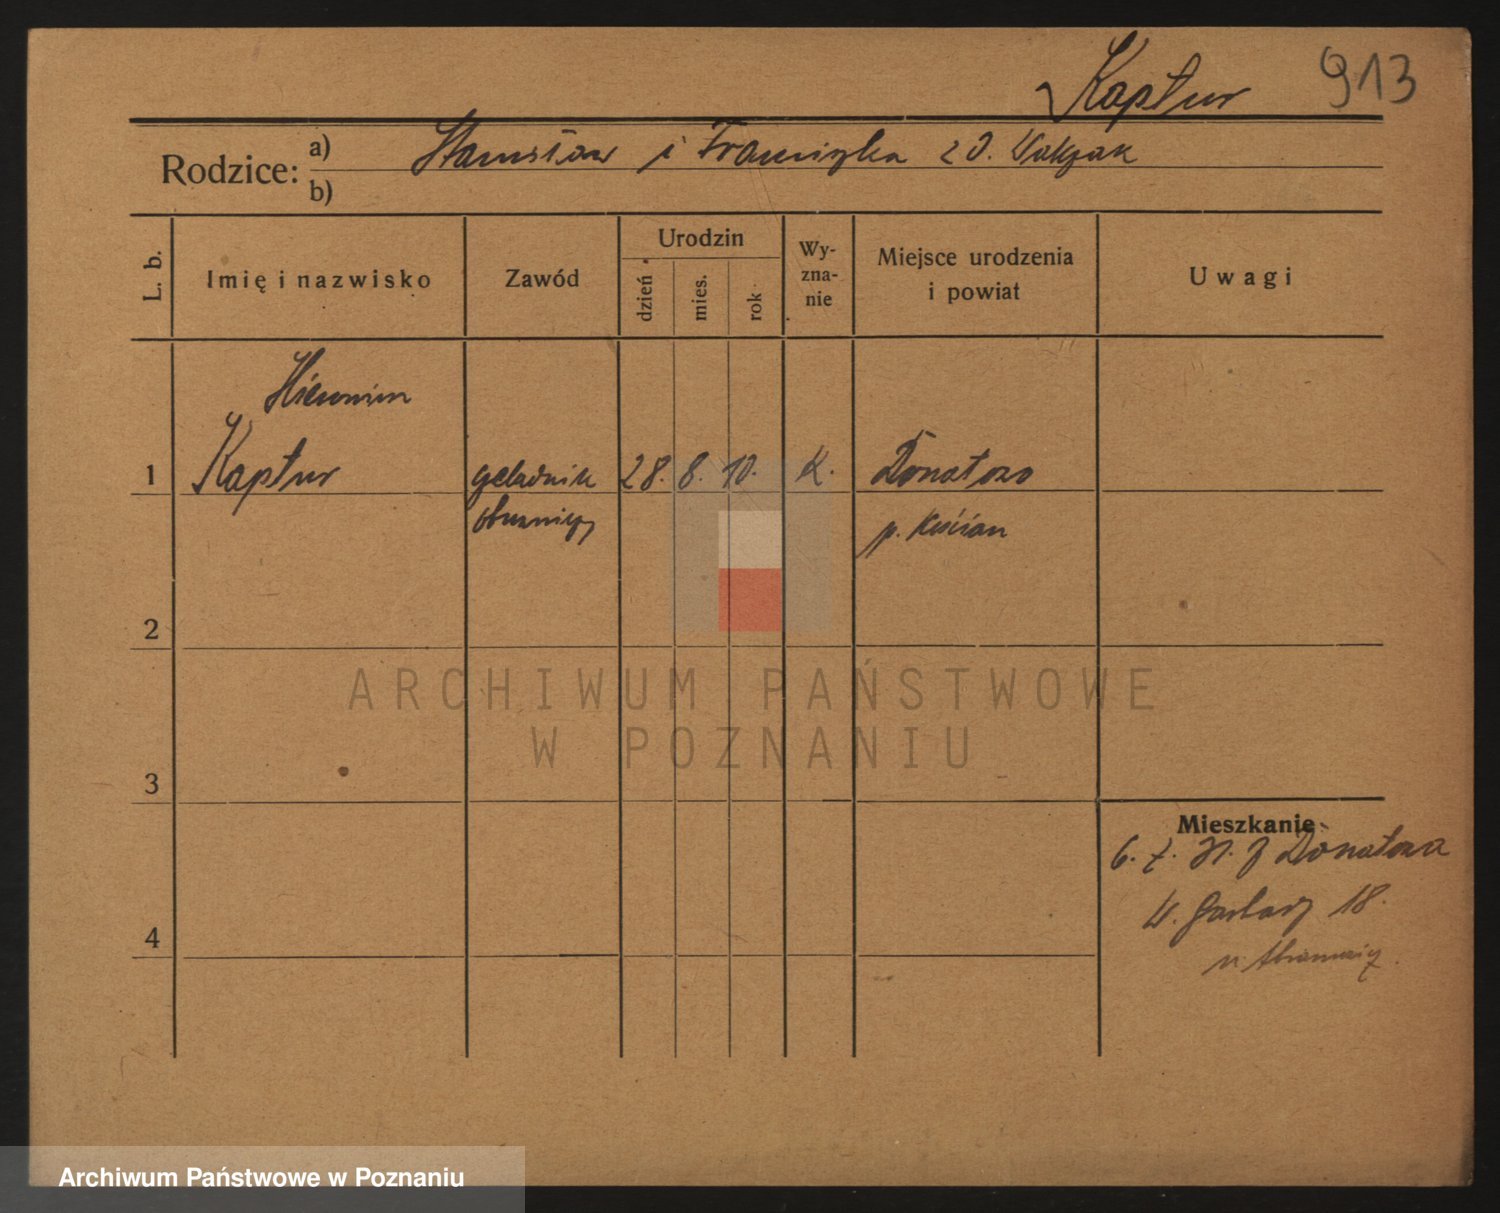 Kaptur 913
Rodzice: a) Stanisław i Franciszka z d.
b)
L. b. Imię i nazwisko Zawód Urodzin dzień mies. rok Wy-zna-nie Miejsce urodzenia i powiat Uwagi
Hieronim
1 Kaptur czeladnik 28. 8. 10. K. Donatowo
p. Kościan
2
3
4
Mieszkanie
6. 7. z Donatowa
W. Garbary 18.
ARCHIWUM PAŃSTWOWE
W POZNANIU
Archiwum Państwowe w Poznaniu